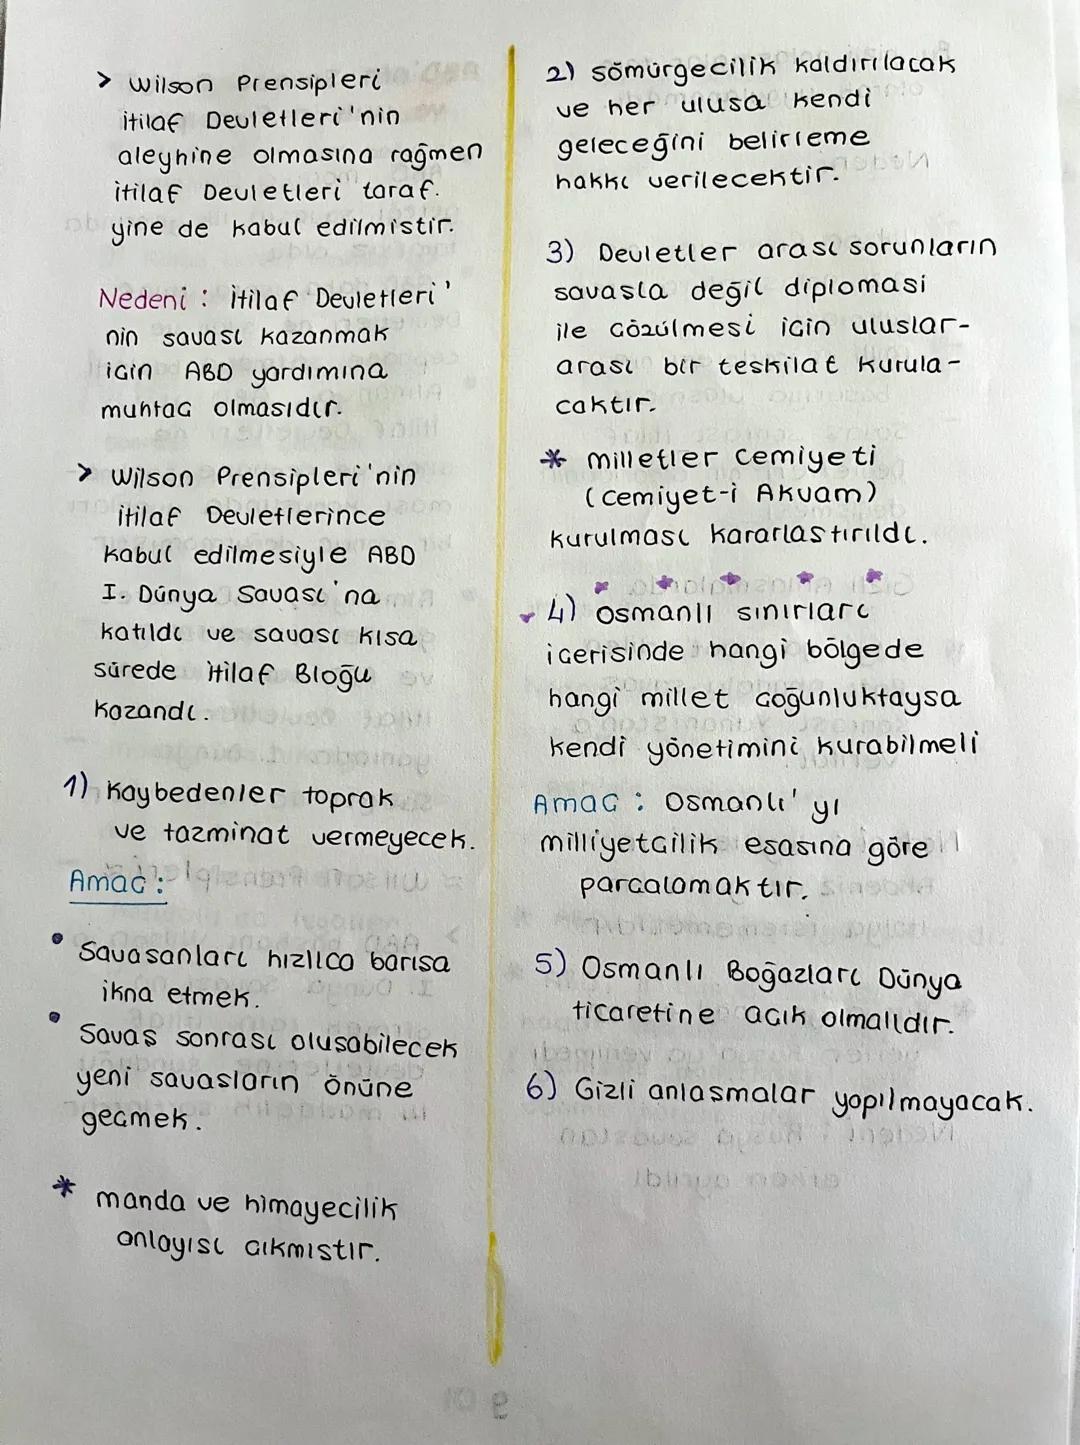 > Wilson Prensipleri
itilaf Devletleri'nin
aleyhine olmasına rağmen
itilaf Devletleri taraf.
yine de kabul edilmistir.
Nedeni : İtilaf Devletleri'
nin savası kazanmak
icin ABD yardımına
muhtac olmasıdır.
> Wilson Prensipleri'nin
itilaf Devletlerince
kabul edilmesiyle ABD
I. Dünya Savası'na
katıldı ve savası kısa
sürede itilaf Bloğu
kazandı.
1) Kaybedenler toprak
ve tazminat vermeyecek.
Amac :
• Savasanları hızlıca barısa
ikna etmek.
• Savas sonrası olusabilecek
yeni savasların önüne
gecmek.
* manda ve himayecilik
anlayısı cıkmıstır.
2) sömürgecilik kaldırılacak
ve her ulusa kendi
geleceğini belirleme
hakkı verilecektir.
3) Devletler arası sorunların
savasla değil diplomasi
ile cözülmesi icin uluslar-
arası bir teskilat kurula-
caktır.
* milletler cemiyeti
(cemiyet-i Akvam)
kurulması kararlastırıldı.
4) osmanlı sınırları
icerisinde hangi bölgede
hangi millet coğunluktaysa
kendi yönetimini kurabilmeli
Amac : Osmanlı'yı
milliyetcilik esasına göre
parcalamaktır.
5) Osmanlı Boğazları Dünya
ticaretine acık olmalıdır.
6) Gizli anlasmalar yapılmayacak.